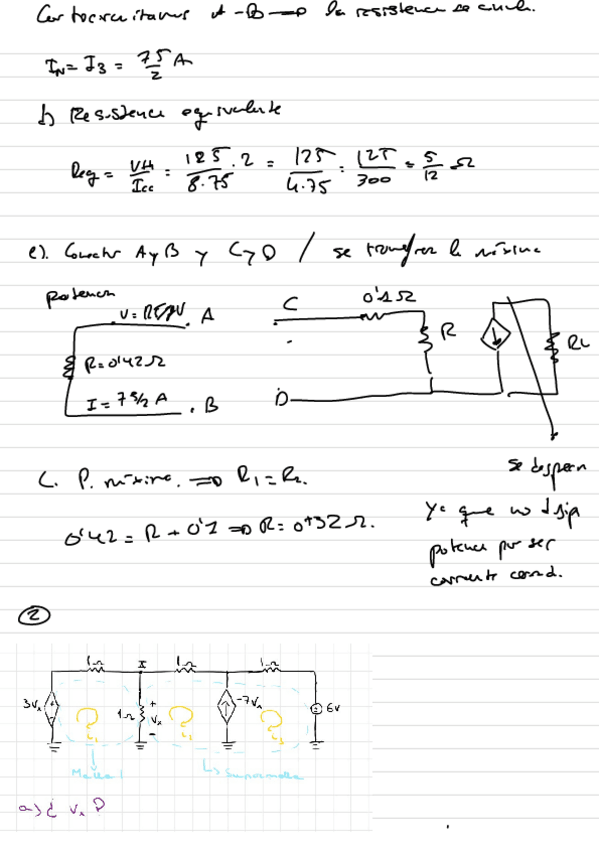 Cortocircuitamos A-B → la resistencia se anula.
I_N = I_3 = 75/2 A
b) Resistencia equivalente
Req = Vth/Icc = 125/8.75 · 2 = 125/4.75 = 125/300 = 5/12 Ω
c). Conectar A y B y C y D / se transfiera la máxima
potencia
A
C
0'1 Ω
R = 0'42 Ω
R
RL
I = 75/2 A
B
D
C. P. máxima. ⇒ R1 = R2.
0'42 = R + 0'1 ⇒ R = 0'32 Ω.
Ya que no disip
potencia por ser
2
1Ω
I
1Ω
1Ω
3Vx
1Ω
+
Vx
-
-7Vx
6V
i1
i2
i3
Malla 1
Supermalla
a) ¿ Vx ?